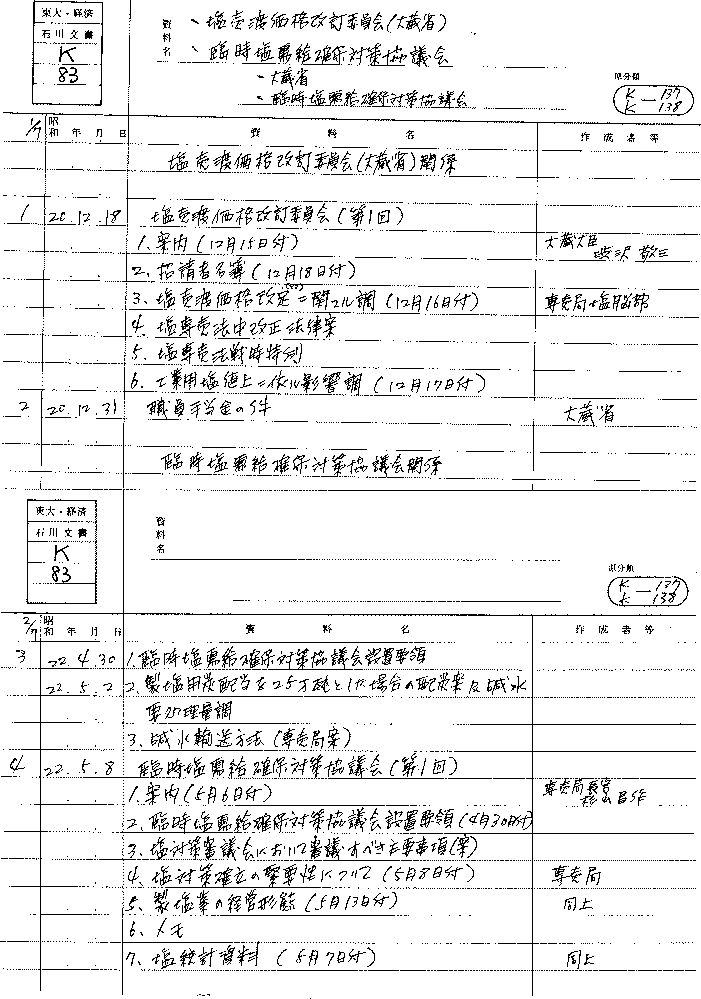 東大・経済
石川文書
K
83
資料名
・塩売渡価格改訂委員会(大蔵省)
・臨時塩需給確保対策協議会
・大蔵省
・臨時塩需給確保対策協議会
原分類
K—137
K—138
1/7 昭和 年 月 日 資 料 名 作 成 者 等
塩売渡価格改訂委員会(大蔵省)関係
1 20.12.18 塩売渡価格改訂委員会(第1回)
1. 案内(12月15日付) 大蔵大臣 渋沢敬三
2. 招請者名簿(12月18日付)
3. 塩売渡価格改定ニ関スル調(12月16日付) 専売局塩脳部
4. 塩専売法中改正法律案
5. 塩専売法戦時特例
6. 工業用塩値上ニ依ル影響調(12月17日付)
2 20.12.31 職員手当金の件 大蔵省
臨時塩需給確保対策協議会関係
東大・経済
石川文書
K
83
資料名
原分類
K—137
K—138
2/7 昭和 年 月 日 資 料 名 作 成 者 等
3 22.4.30 1. 臨時塩需給確保対策協議会設置要領
22.5.2 2. 製塩用炭配当を25万瓲とした場合の配炭案及鹹水
要処理量調
3. 鹹水輸送方法(専売局案)
4 22.5.8 臨時塩需給確保対策協議会(第1回)
1. 案内(5月6日付) 専売局長官 杉山昌作
2. 臨時塩需給確保対策協議会設置要領(4月30日付)
3. 塩対策審議会において審議すべき主要事項(案)
4. 塩対策確立の緊要性について(5月8日付) 専売局
5. 製塩業の経営形態(5月13日付) 同上
6. メモ
7. 塩統計資料(5月7日付) 同上